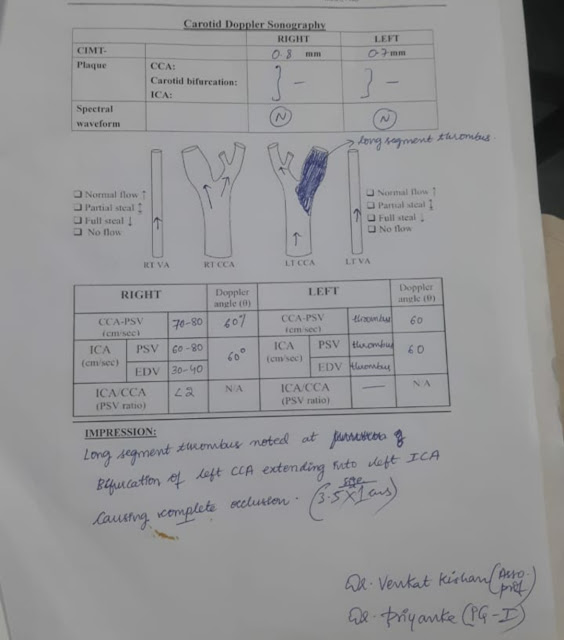 Carotid Doppler Sonography
RIGHT LEFT
CIMT- 0.8 mm 0.7 mm
Plaque CCA:
Carotid bifurcation: } — } —
ICA:
Spectral waveform N N
long segment thrombus.
☐ Normal flow ↑ ☐ Normal flow ↑
☐ Partial steal ↑↓ ☐ Partial steal ↑↓
☐ Full steal ↓ ☐ Full steal ↓
☐ No flow ☐ No flow
RT VA RT CCA LT CCA LT VA
RIGHT Doppler angle (θ) LEFT Doppler angle (θ)
CCA-PSV (cm/sec) 70-80 60° CCA-PSV (cm/sec) thrombus 60
ICA (cm/sec) PSV 60-80 60° ICA (cm/sec) PSV thrombus 60
EDV 30-40 EDV thrombus
ICA/CCA (PSV ratio) <2 N/A ICA/CCA (PSV ratio) — N/A
IMPRESSION:
Long segment thrombus noted at
Bifurcation of left CCA extending into left ICA
causing complete occlusion. (3.5 X 1 cms)
Dr. Venkat Kishan (Asso. prof)
Dr. Priyanka (PG-I)